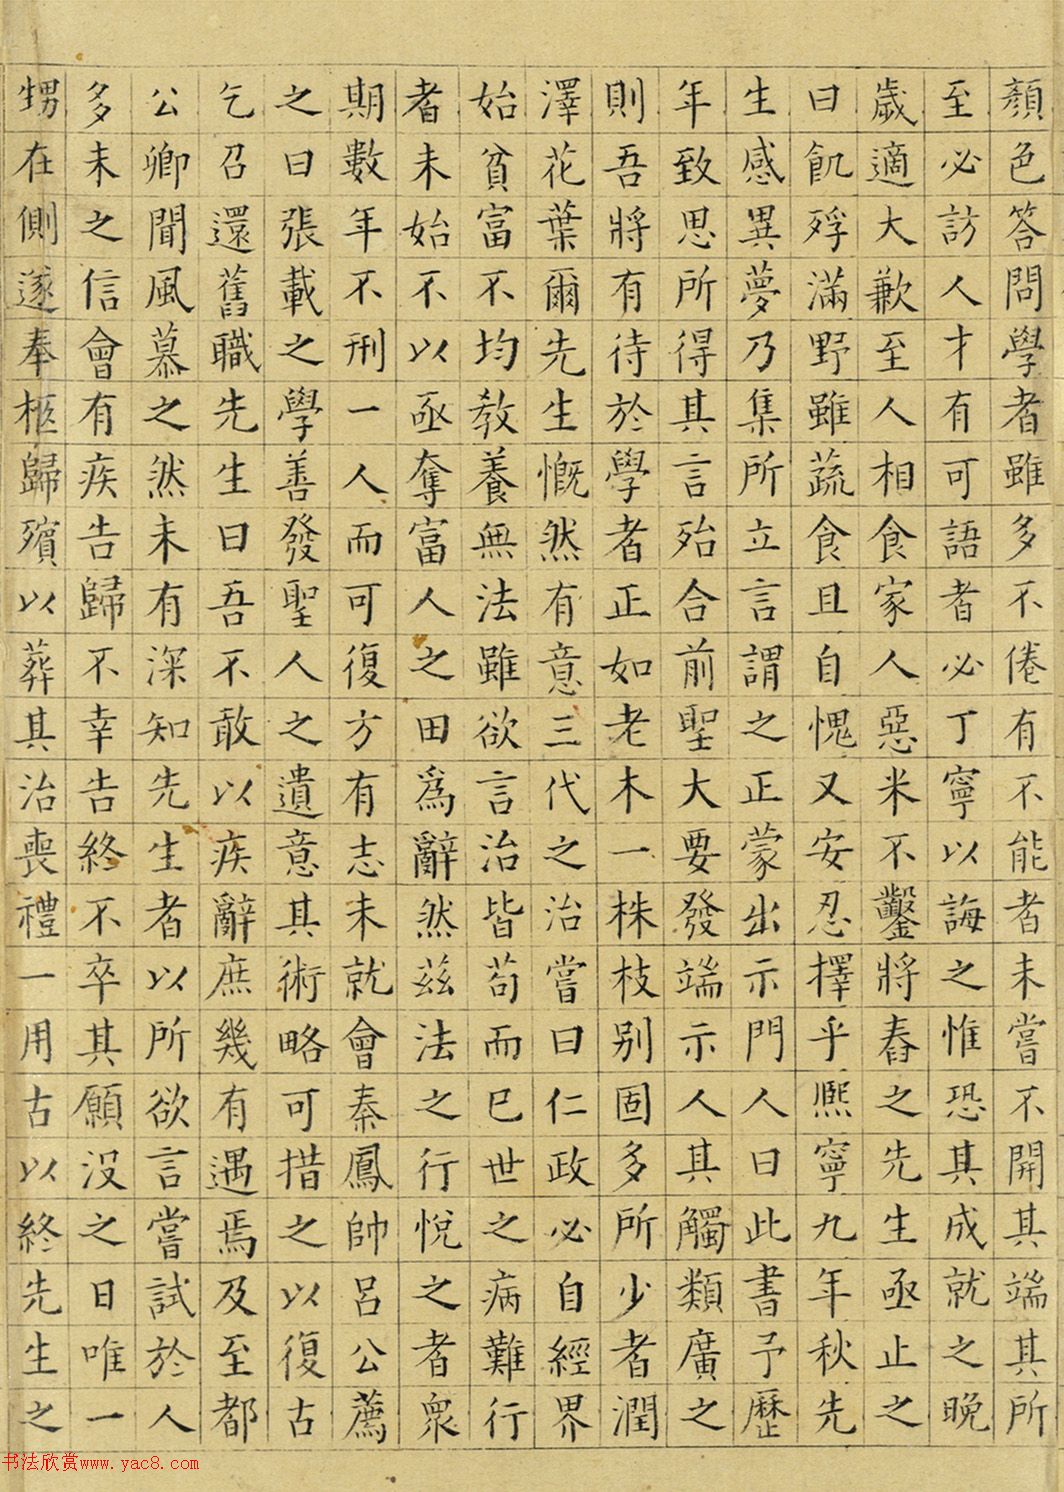 顏色答問學者雖多不倦有不能者未嘗不開其端其所
至必訪人才有可語者必丁寧以誨之惟恐其成就之晚
歲適大歉至人相食家人惡米不鑿將舂之先生亟止之
曰飢殍滿野雖蔬食且自愧又安忍擇乎熈寧九年秋先
生感異夢乃集所立言謂之正蒙出示門人曰此書予歷
年致思所得其言殆合前聖大要發端示人其觸類廣之
則吾將有待於學者正如老木一株枝别固多所少者潤
澤花葉爾先生慨然有意三代之治嘗曰仁政必自經界
始貧富不均教養無法雖欲言治皆苟而巳世之病難行
者未始不以亟奪富人之田爲辭然茲法之行悅之者衆
期數年不刑一人而可復方有志未就會秦鳳帥呂公薦
之曰張載之學善發聖人之遺意其術略可措之以復古
乞召還舊職先生曰吾不敢以疾辭庶幾有遇焉及至都
公卿聞風慕之然未有深知先生者以所欲言嘗試於人
多未之信會有疾告歸不幸告終不卒其願沒之日唯一
甥在側遂奉柩歸殯以葬其治喪禮一用古以終先生之
书法欣赏www.yac8.com